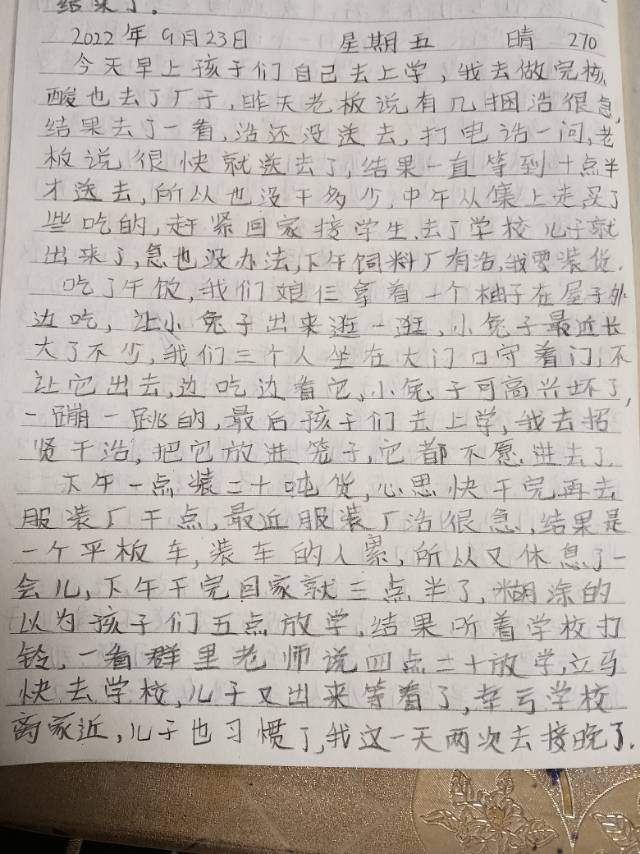 结果了.
2022年9月23日 星期五 晴 270
今天早上孩子们自己去上学,我去做完核
酸也去了厂子,昨天老板说有几捆活很急,
结果去了一看,活还没送去,打电话一问,老
板说很快就送去了,结果一直等到十点半
才送去,所以也没干多少,中午从集上走买了
些吃的,赶紧回家接学生,去了学校儿子就
出来了,急也没办法,下午饲料厂有活,我要装货.
吃了午饭,我们娘仨拿着一个柚子在屋子外
边吃,让小兔子出来逛一逛,小兔子最近长
大了不少,我们三个人坐在大门口守着门,不
让它出去,边吃边看它,小兔子可高兴坏了,
一蹦一跳的,最后孩子们去上学,我去招
贤干活,把它放进笼子,它都不愿进去了.
下午一点装二十吨货,心思快干完再去
服装厂干点,最近服装厂活很急,结果是
一个平板车,装车的人累,所以又休息了一
会儿,下午干完回家就三点半了,糊涂的
以为孩子们五点放学,结果听着学校打
铃,一看群里老师说四点二十放学,立马
快去学校,儿子又出来等着了,幸亏学校
离家近,儿子也习惯了,我这一天两次去接晚了.